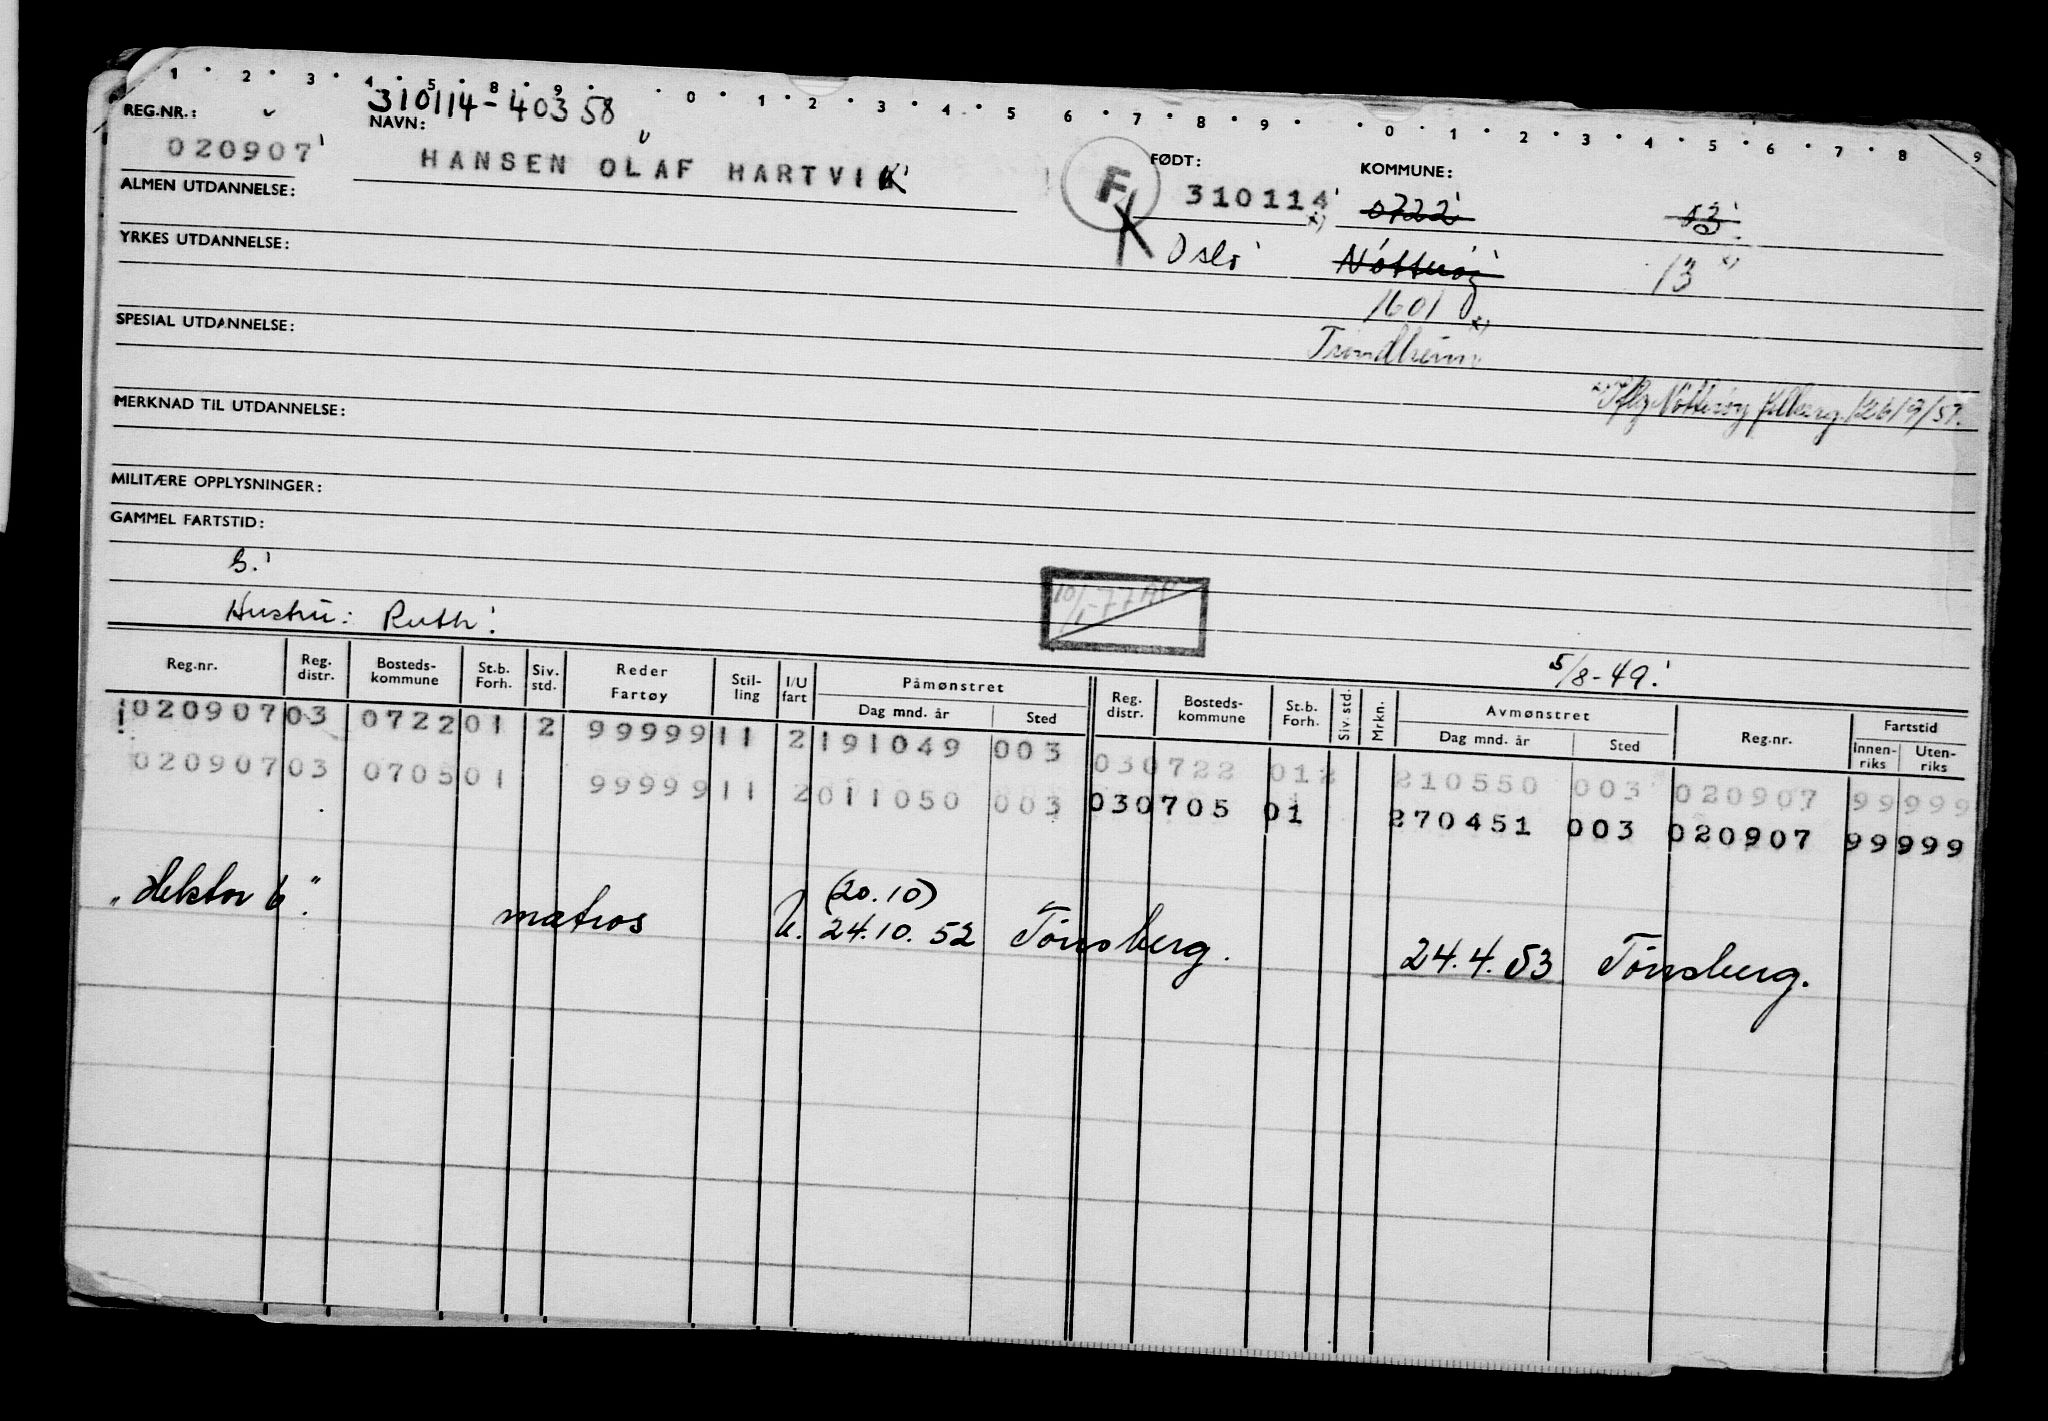 1 · 2 · 3 · 4 · 5 · 8 · 9 · · 0 · 1 · 2 · 3 · 4 · 5 6 · 7 · 8 · 9 · · 0 · 1 · 2 · 3 · 4 · 5 · 6 · 7 · 8 · 9
310114-40358
REG.NR.: NAVN: FØDT: KOMMUNE:
020907 HANSEN OLAF HARTVIK F 310114 0722 13
ALMEN UTDANNELSE:
K Oslo Nøtterøy 13
YRKES UTDANNELSE:
1601
Trondheim
SPESIAL UTDANNELSE:
Nøtterøy
MERKNAD TIL UTDANNELSE:
MILITÆRE OPPLYSNINGER:
GAMMEL FARTSTID:
Hustru: Ruth
5/8-49
Reg.nr. Reg. distr. Bosteds-kommune St.b. Forh. Siv. std. Reder Fartøy Stil-ling I/U fart Påmønstret Dag mnd. år Sted Reg. distr. Bosteds-kommune St.b. Forh. Siv. std. Mrkn. Avmønstret Dag mnd. år Sted Reg.nr. Fartstid Innen-riks Uten-riks
020907 03 0722 01 2 99999 11 2 191049 003 03 0722 012 210550 003 020907 99 999
020907 03 0705 01 99999 11 2 011050 003 03 0705 01 270451 003 020907 99 999
(20.10)
"Hektor 6". matros U. 24.10.52 Tønsberg. 24.4.53 Tønsberg.